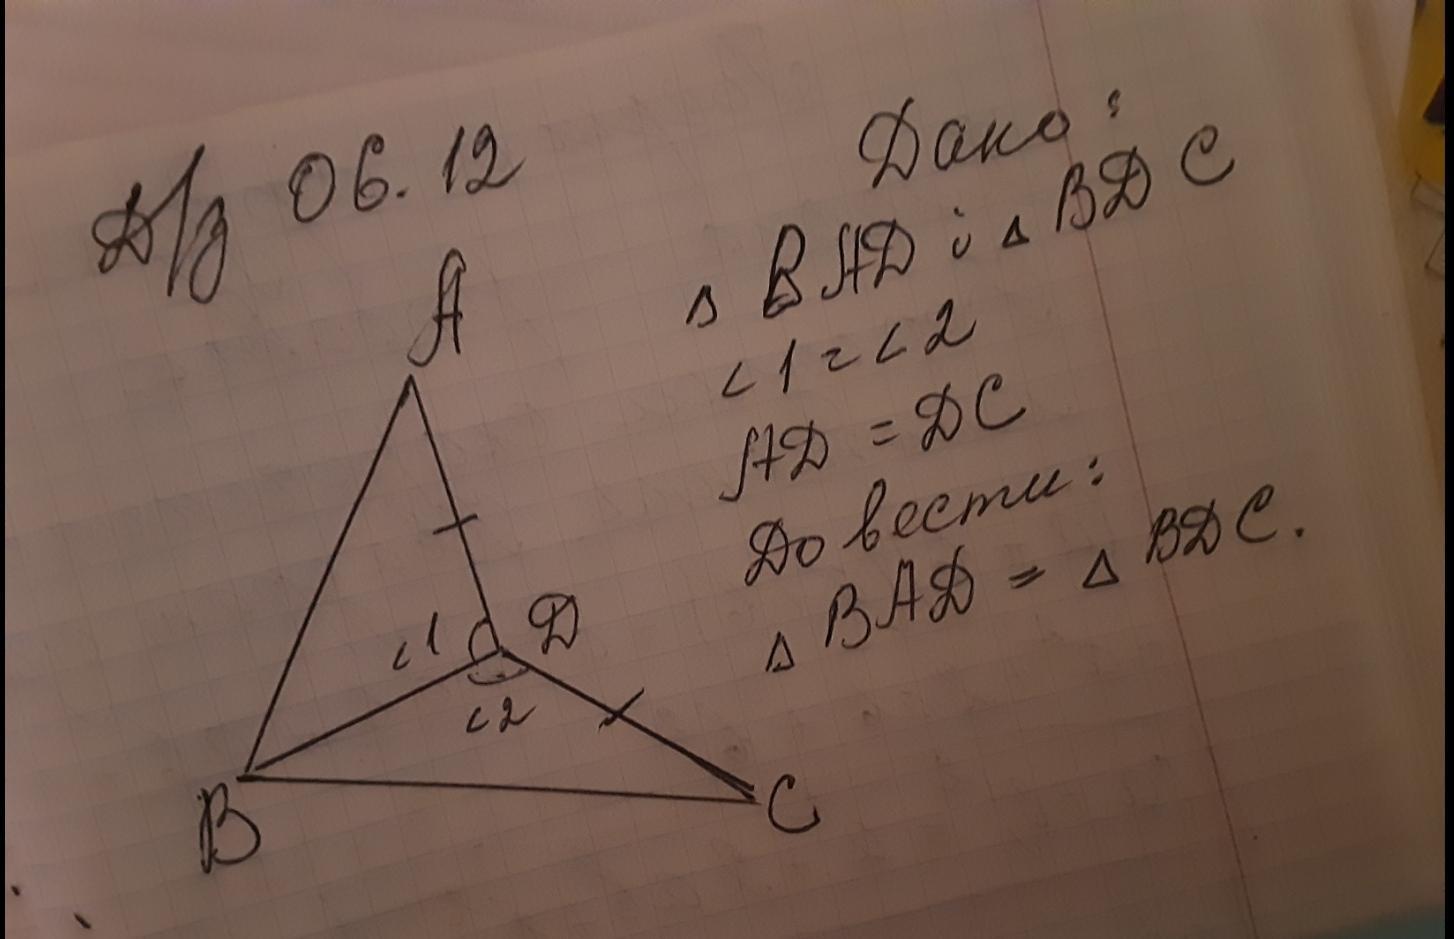 Д/з 06.12
Дано:
△ BAD і △ BDC
<1 = <2
AD = DC
Довести:
△ BAD = △ BDC.
A
<1
D
<2
B
C